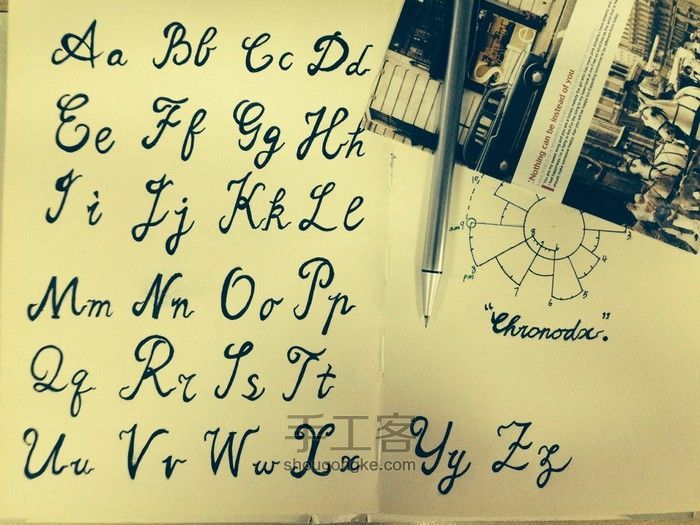 Aa Bb Cc Dd
Ee Ff Gg Hh
Ii Jj Kk Ll
Mm Nn Oo Pp
Qq Rr Ss Tt
Uu Vv Ww Xx Yy Zz
Nothing can be instead of you
am 9
pm 8
7
6
5
4
3
"Chronodx."
手工客
shougongke.com